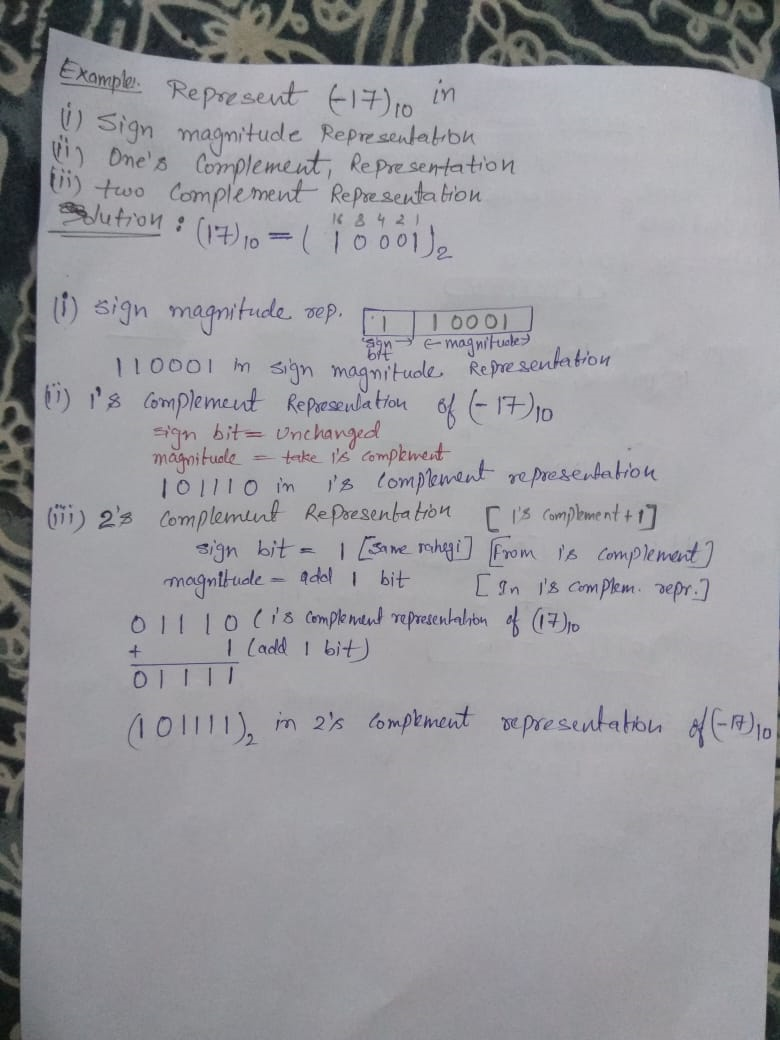 Example:. Represent (-17)10 in
(i) Sign magnitude Representation
(ii) One's Complement, Representation
(iii) two Complement Representation
Solution : (17)10 = ( 1 0 0 0 1 )2
16 8 4 2 1
(i) sign magnitude rep. 1 | 10001
sign bit → ← magnitude →
110001 in sign magnitude Representation
(ii) 1's Complement Representation of (-17)10
sign bit = Unchanged
magnitude = take 1's complement
101110 in 1's Complement representation
(iii) 2's Complement Representation [ 1's Complement + 1 ]
sign bit = 1 [Same rahegi] [From 1's Complement]
magnitude = add 1 bit [ In 1's Complem. repr.]
01110 (1's Complement representation of (17)10
+ 1 (add 1 bit)
01111
(101111)2 in 2's Complement representation of (-17)10